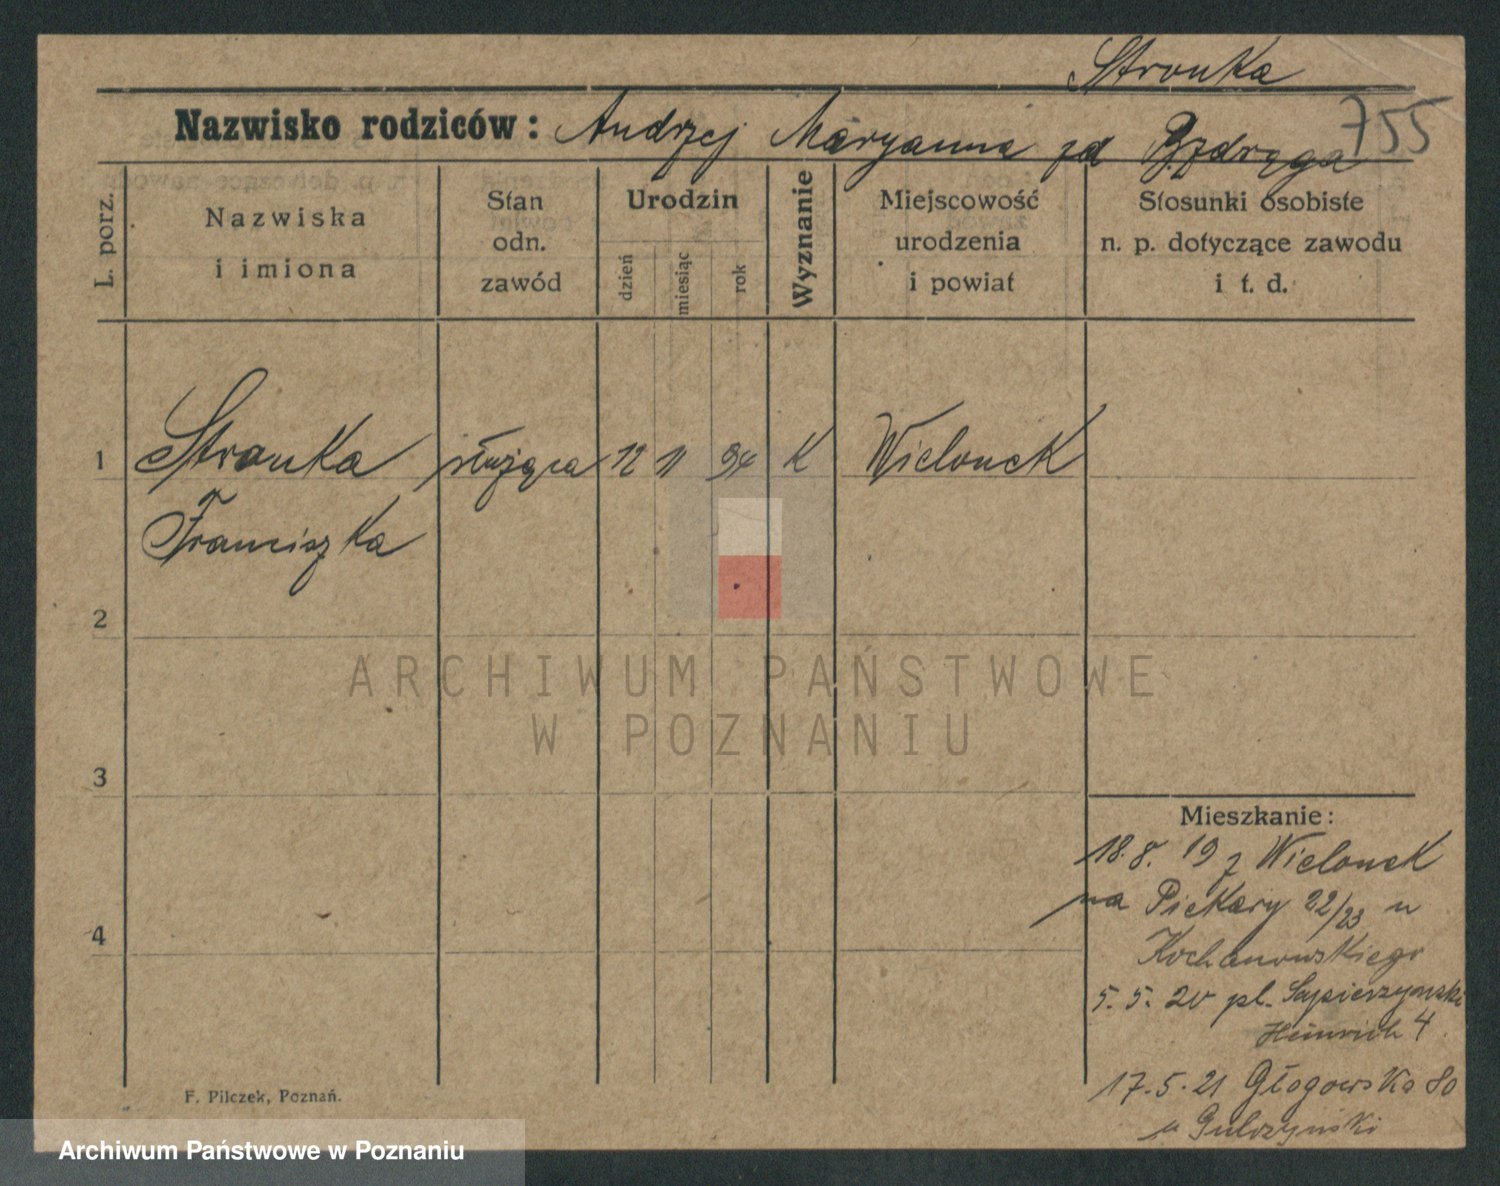 Stronka
755
Nazwisko rodziców: Andrzej Maryanna zd
L. porz.
Nazwiska
i imiona
Stan
odn.
zawód
Urodzin
dzień
miesiąc
rok
Wyznanie
Miejscowość
urodzenia
i powiat
Stosunki osobiste
n. p. dotyczące zawodu
i t. d.
1 Stronka służąca 12 11 94 K Wielonek
Franciszka
2
3
4
ARCHIWUM PAŃSTWOWE
W POZNANIU
Mieszkanie:
18.8.19 z Wielonek
na Piekary 22/23 u
Kochanowskiego
5.5.20 pl. Sapieżyński
Heinrich 4
17.5.21 Głogowska 80
u Gulczyński
F. Pilczek, Poznań.
Archiwum Państwowe w Poznaniu